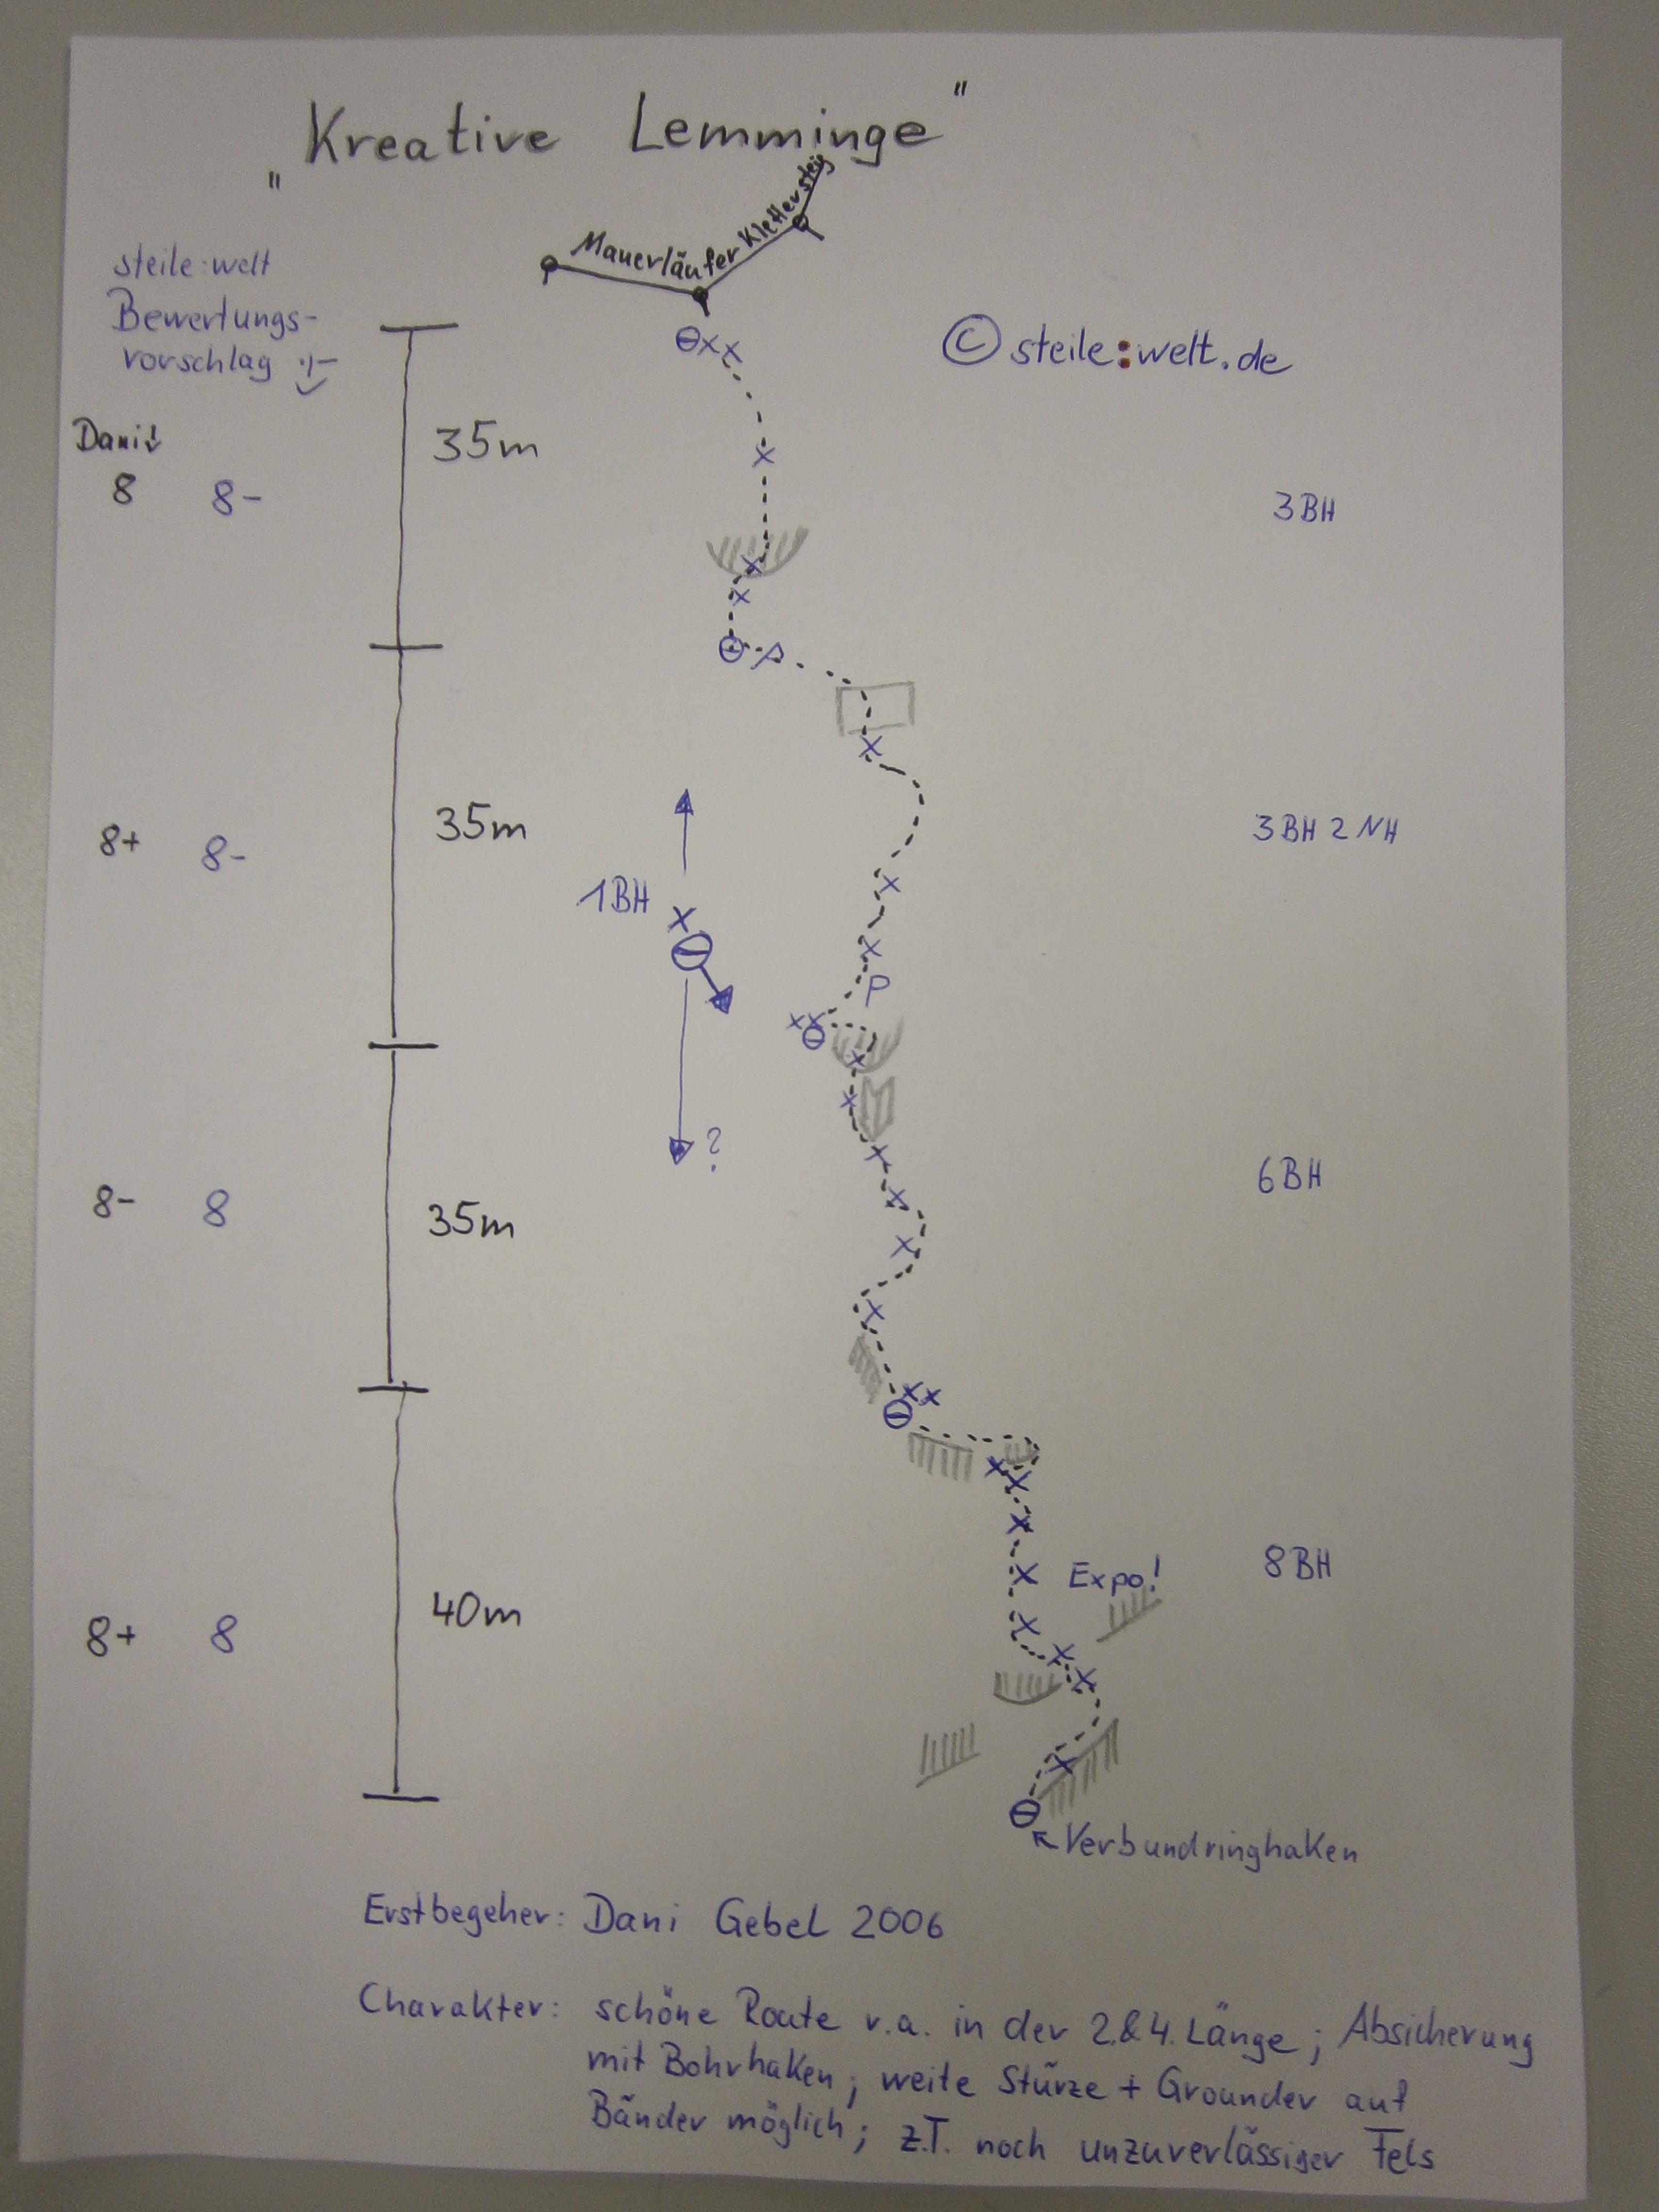 "Kreative Lemminge"
Mauerläufer Klettersteig
steile:welt
Bewertungs-
vorschlag :-)
© steile:welt.de
Dani↓
8 8- 35m 3BH
8+ 8- 35m 3BH 2NH
1BH
P
?
8- 8 35m 6BH
Expo!
8+ 8 40m 8BH
Verbundringhaken
Erstbegeher: Dani Gebel 2006
Charakter: schöne Route v.a. in der 2.&4. Länge; Absicherung
mit Bohrhaken; weite Stürze + Grounder auf
Bänder möglich; z.T. noch unzuverlässiger Fels